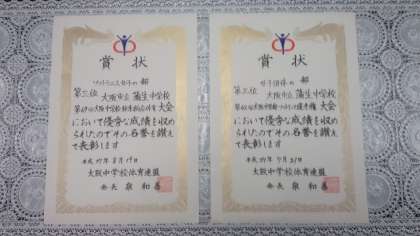 賞状
ソフトテニス女子の部
第三位 大阪市立 蒲生中学校
大会
において優秀な成績を収め
られたのでその名誉を讃え
て表彰します
平成27年8月19日
大阪中学校体育連盟
会長 泉 和善
賞状
女子団体の部
第三位 大阪市立 蒲生中学校
大会
において優秀な成績を収め
られたのでその名誉を讃え
て表彰します
平成27年7月31日
大阪中学校体育連盟
会長 泉 和善